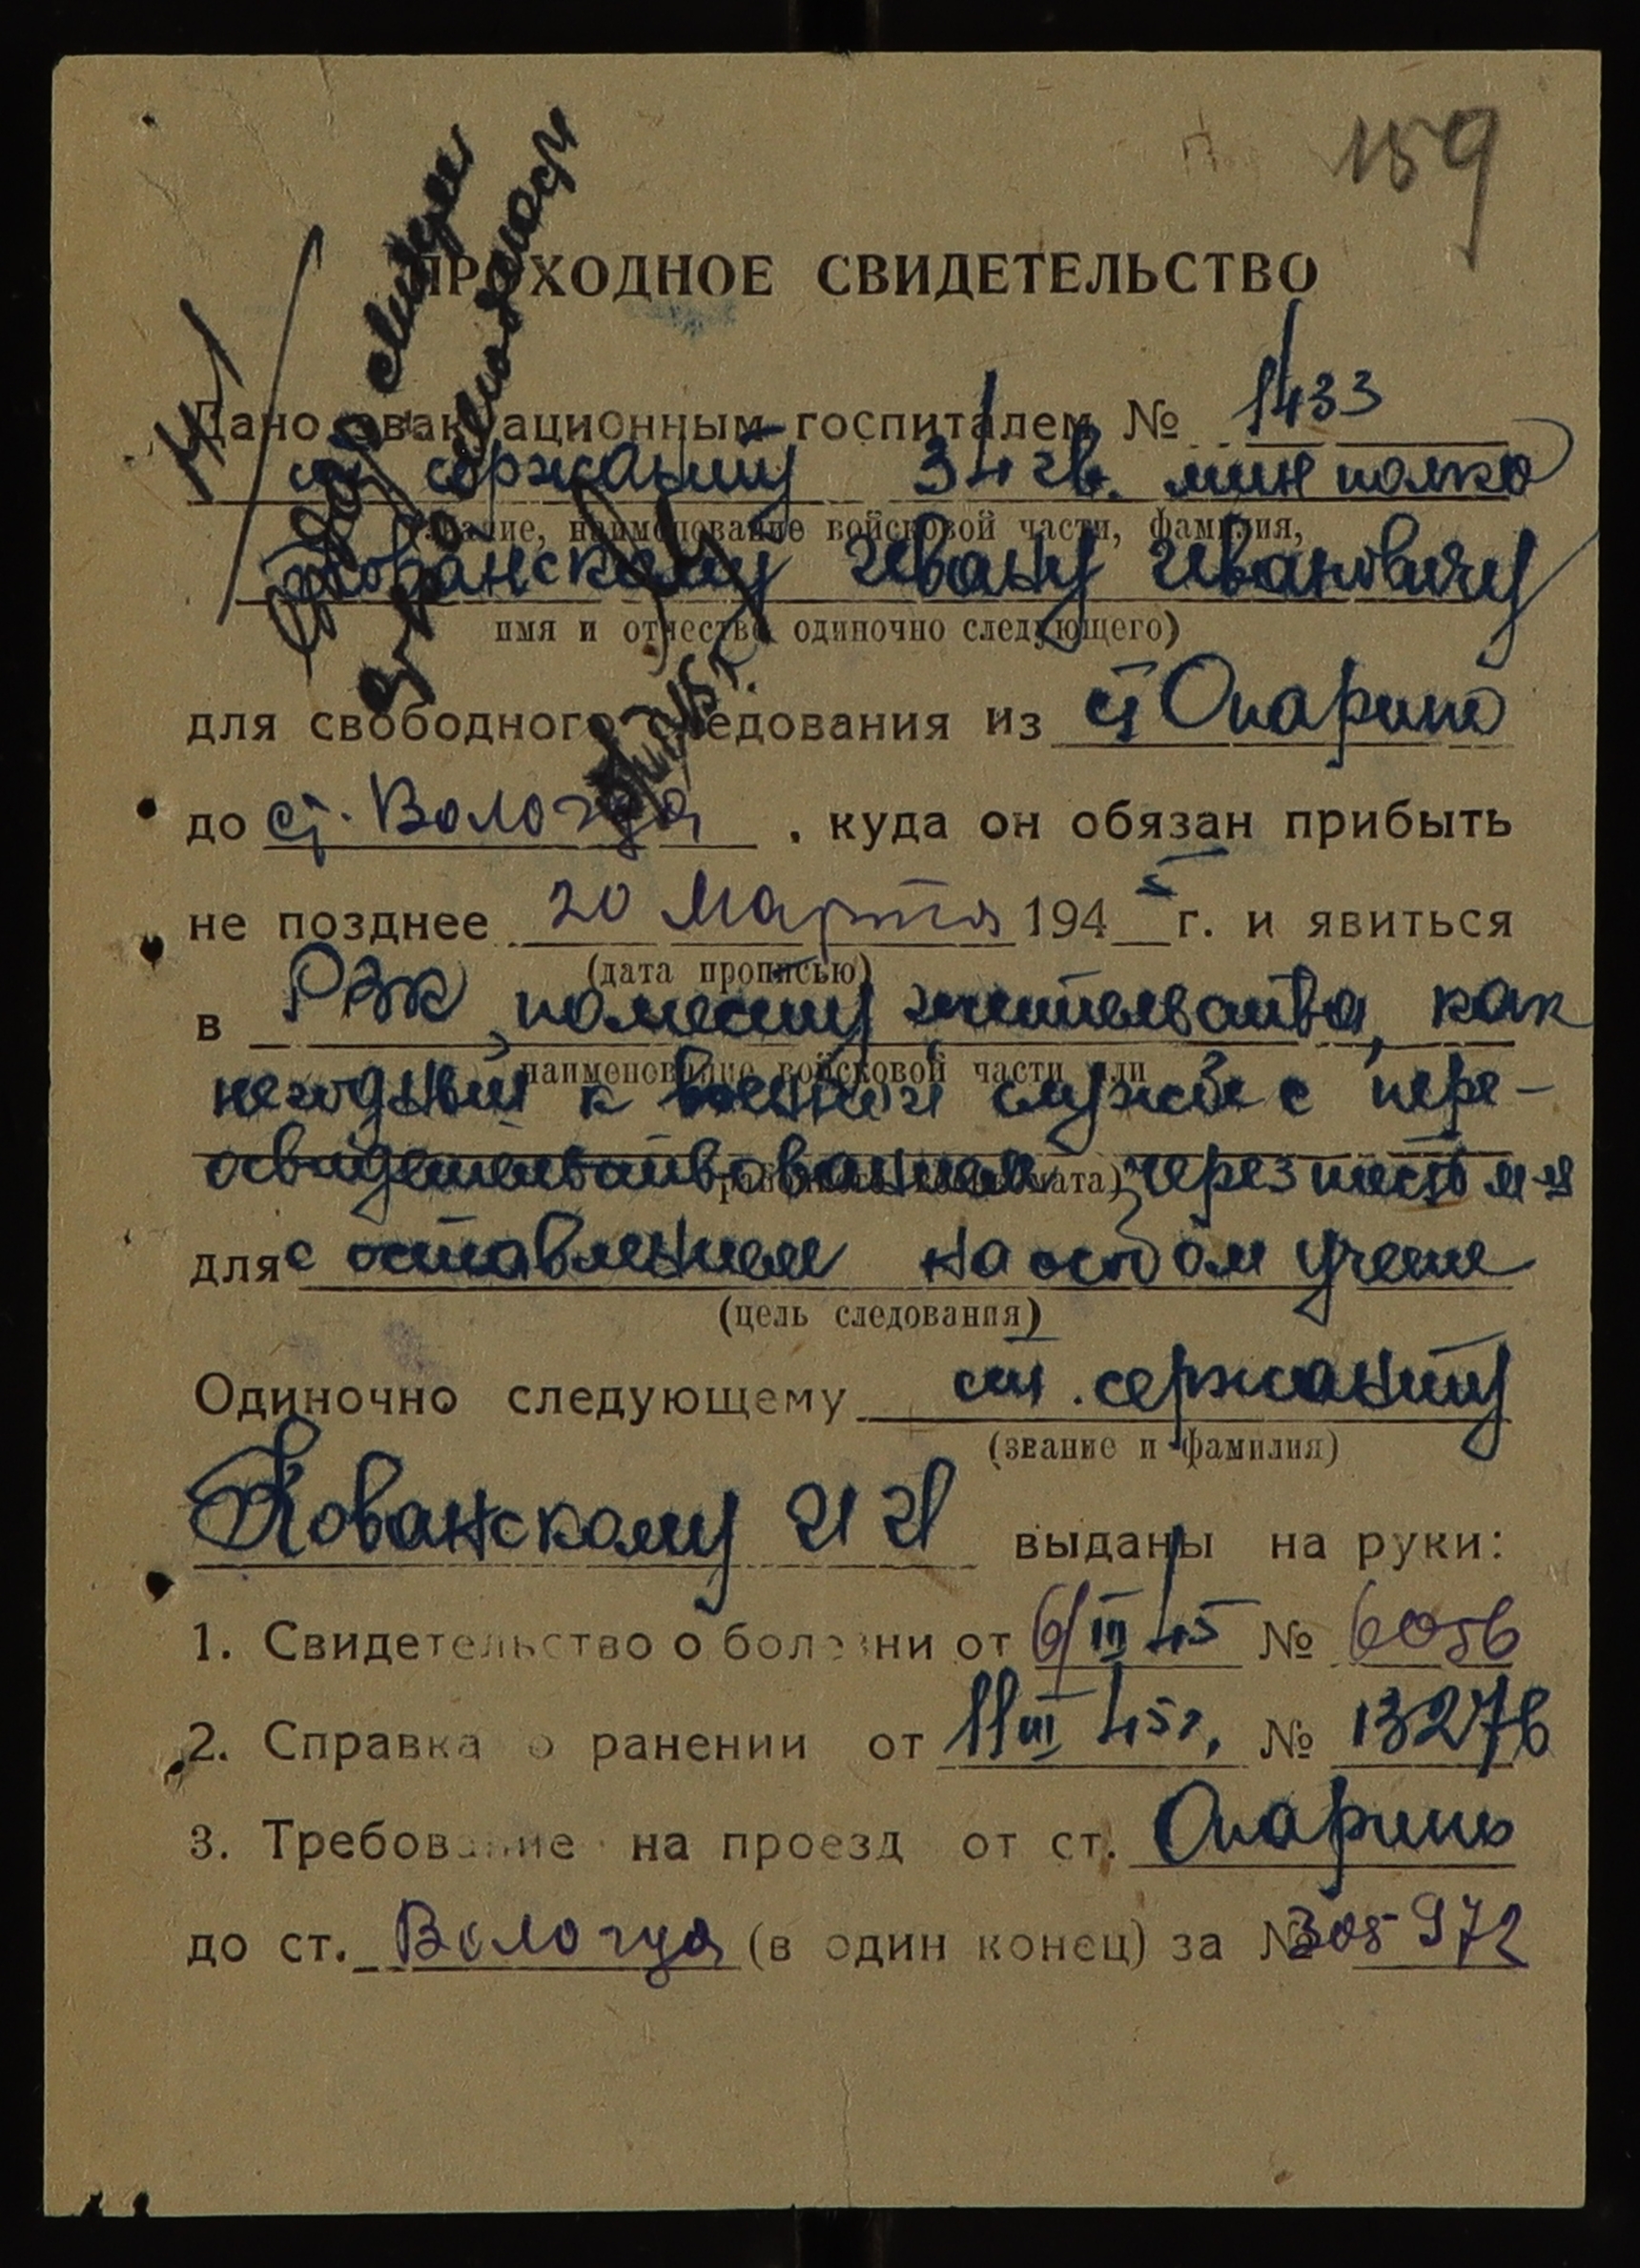 159
ПРОХОДНОЕ СВИДЕТЕЛЬСТВО
Дано эвакуационным госпиталем № 1433
ст сержанту 34 гв. мин полка
(звание, наименование войсковой части, фамилия,
Кованскому Ивану Ивановичу
имя и отчество одиночно следующего)
для свободного следования из ст Опарино
до ст. Вологда, куда он обязан прибыть
не позднее 20 Марта 1945 г. и явиться
(дата прописью)
в РВК, по месту жительства, как
наименование войсковой части или
негодный к военной службе с пере-
освидетельствованием через шесть м-ц
районного военкомата)
для с оставлением на особом учете
(цель следования)
Одиночно следующему ст. сержанту
(звание и фамилия)
Кованскому И И выданы на руки:
1. Свидетельство о болезни от 6/III 45 № 6056
2. Справка о ранении от 11 III 45г. № 13276
3. Требование на проезд от ст. Опарино
до ст. Вологда (в один конец) за № 305972